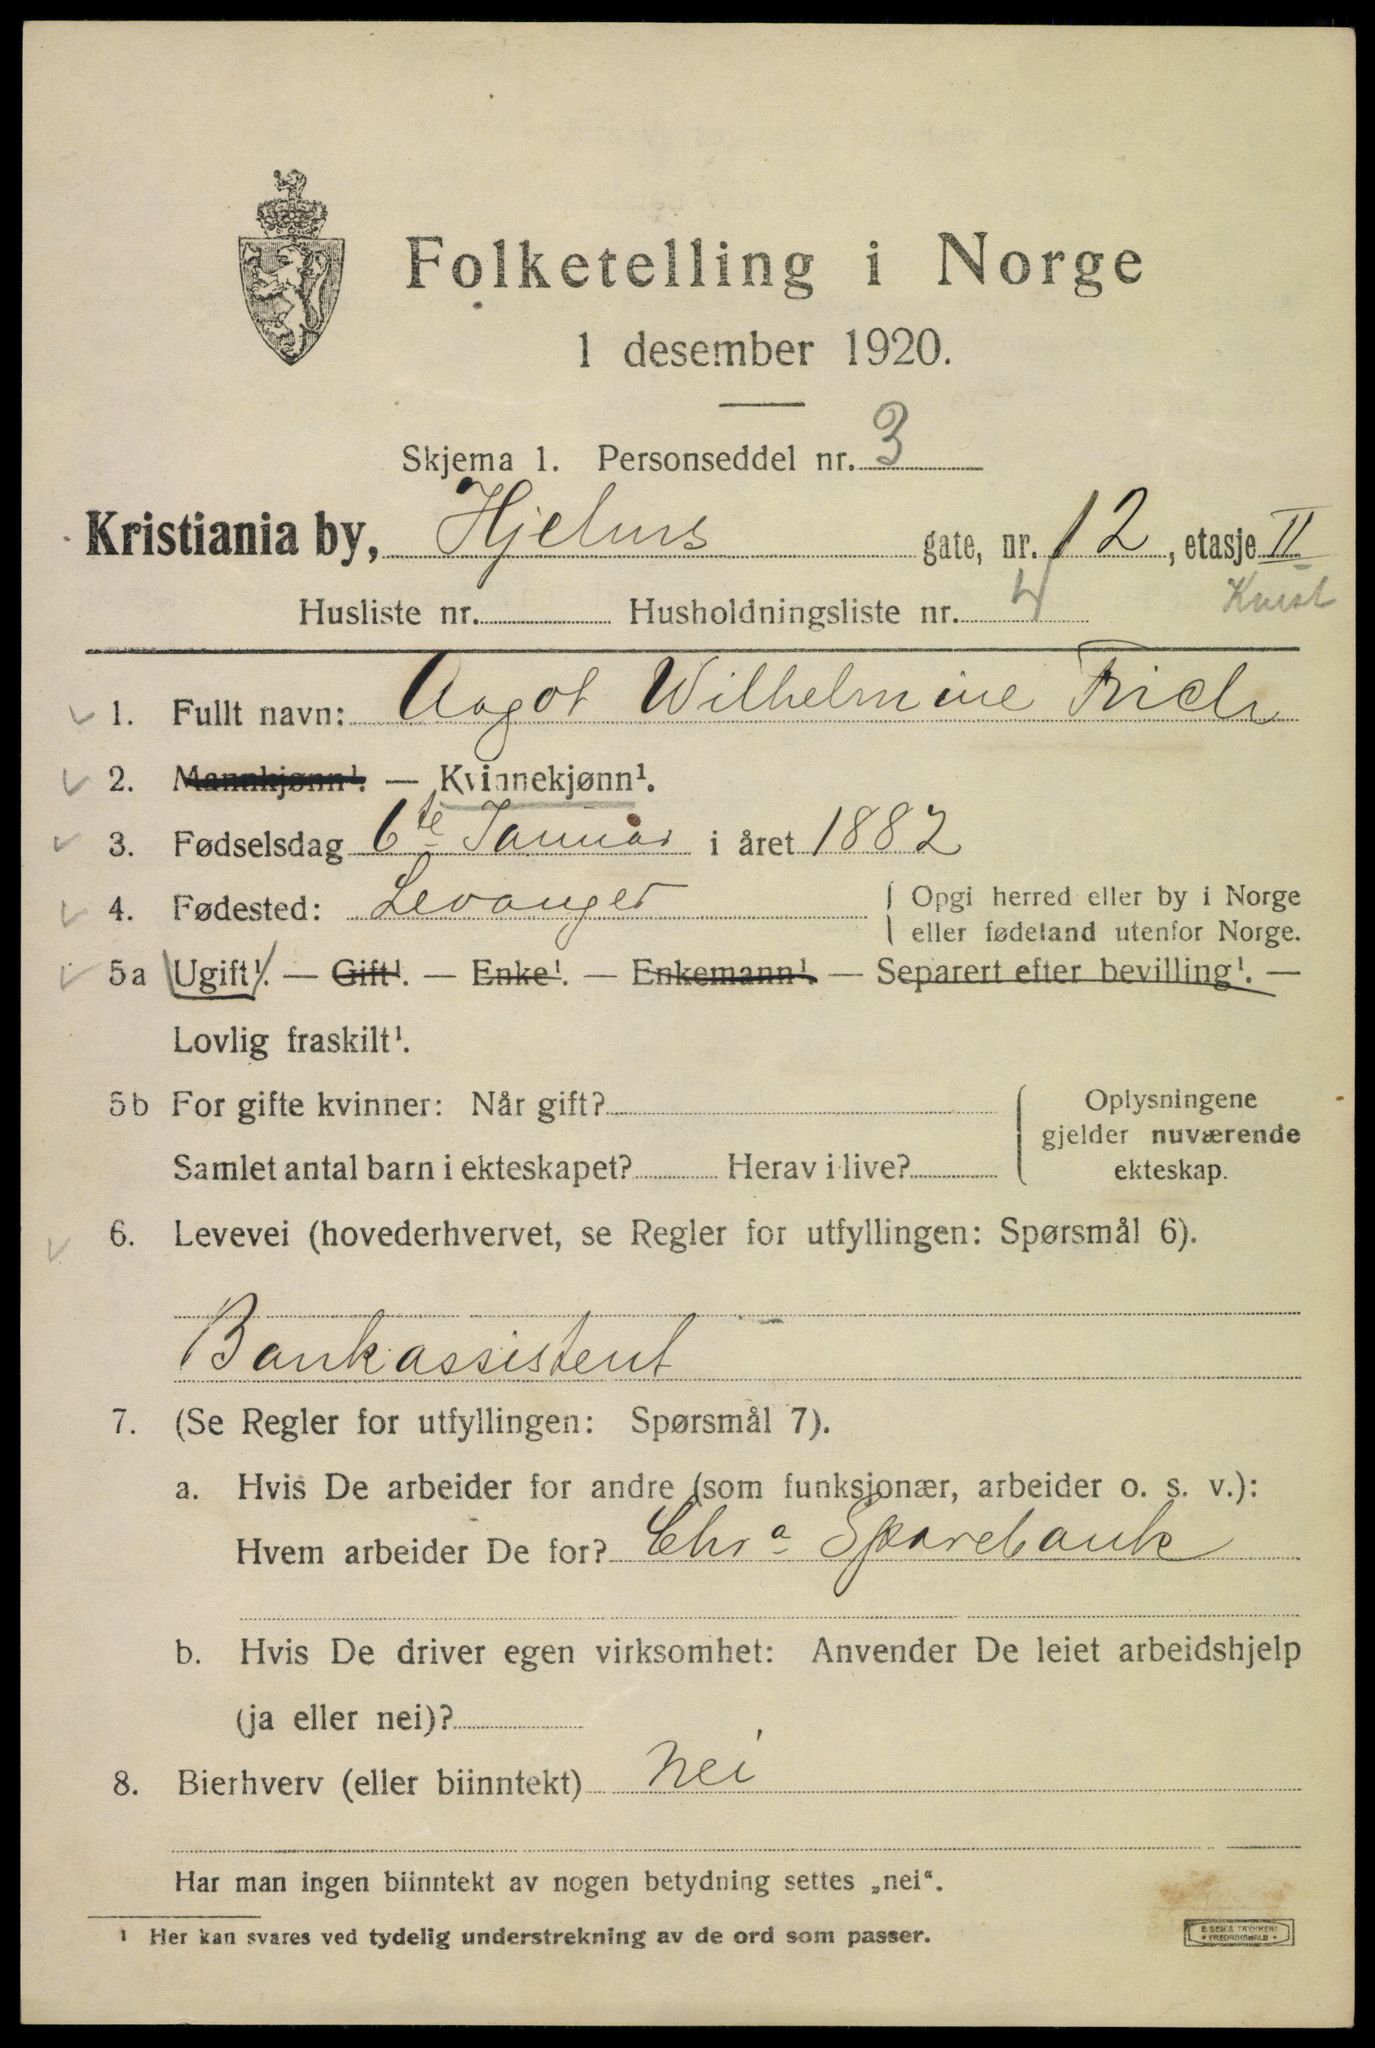 Folketelling i Norge
1 desember 1920.
Skjema 1. Personseddel nr. 3
Kristiania by, Hjelms gate, nr. 12, etasje II
Husliste nr. Husholdningsliste nr. 4 Kvist
1. Fullt navn: Aagot Wilhelmine Frich
2. Mannkjønn¹. — Kvinnekjønn¹.
3. Fødselsdag 6te Januar i året 1882
4. Fødested: Levanger { Opgi herred eller by i Norge
eller fødeland utenfor Norge.
5a Ugift¹. — Gift¹. — Enke¹. — Enkemann¹. — Separert efter bevilling¹. —
Lovlig fraskilt¹.
5b For gifte kvinner: Når gift? Oplysningene
gjelder nuværende
Samlet antal barn i ekteskapet? Herav i live? ekteskap.
6. Levevei (hovederhvervet, se Regler for utfyllingen: Spørsmål 6).
Bankassistent
7. (Se Regler for utfyllingen: Spørsmål 7).
a. Hvis De arbeider for andre (som funksjonær, arbeider o. s. v.):
Hvem arbeider De for? Chr.a Sparebank
b. Hvis De driver egen virksomhet: Anvender De leiet arbeidshjelp
(ja eller nei)?
8. Bierhverv (eller biinntekt) nei
Har man ingen biinntekt av nogen betydning settes „nei“.
¹ Her kan svares ved tydelig understrekning av de ord som passer.
E. SEM'S TRYKKERI
* FREDRIKSHALD *